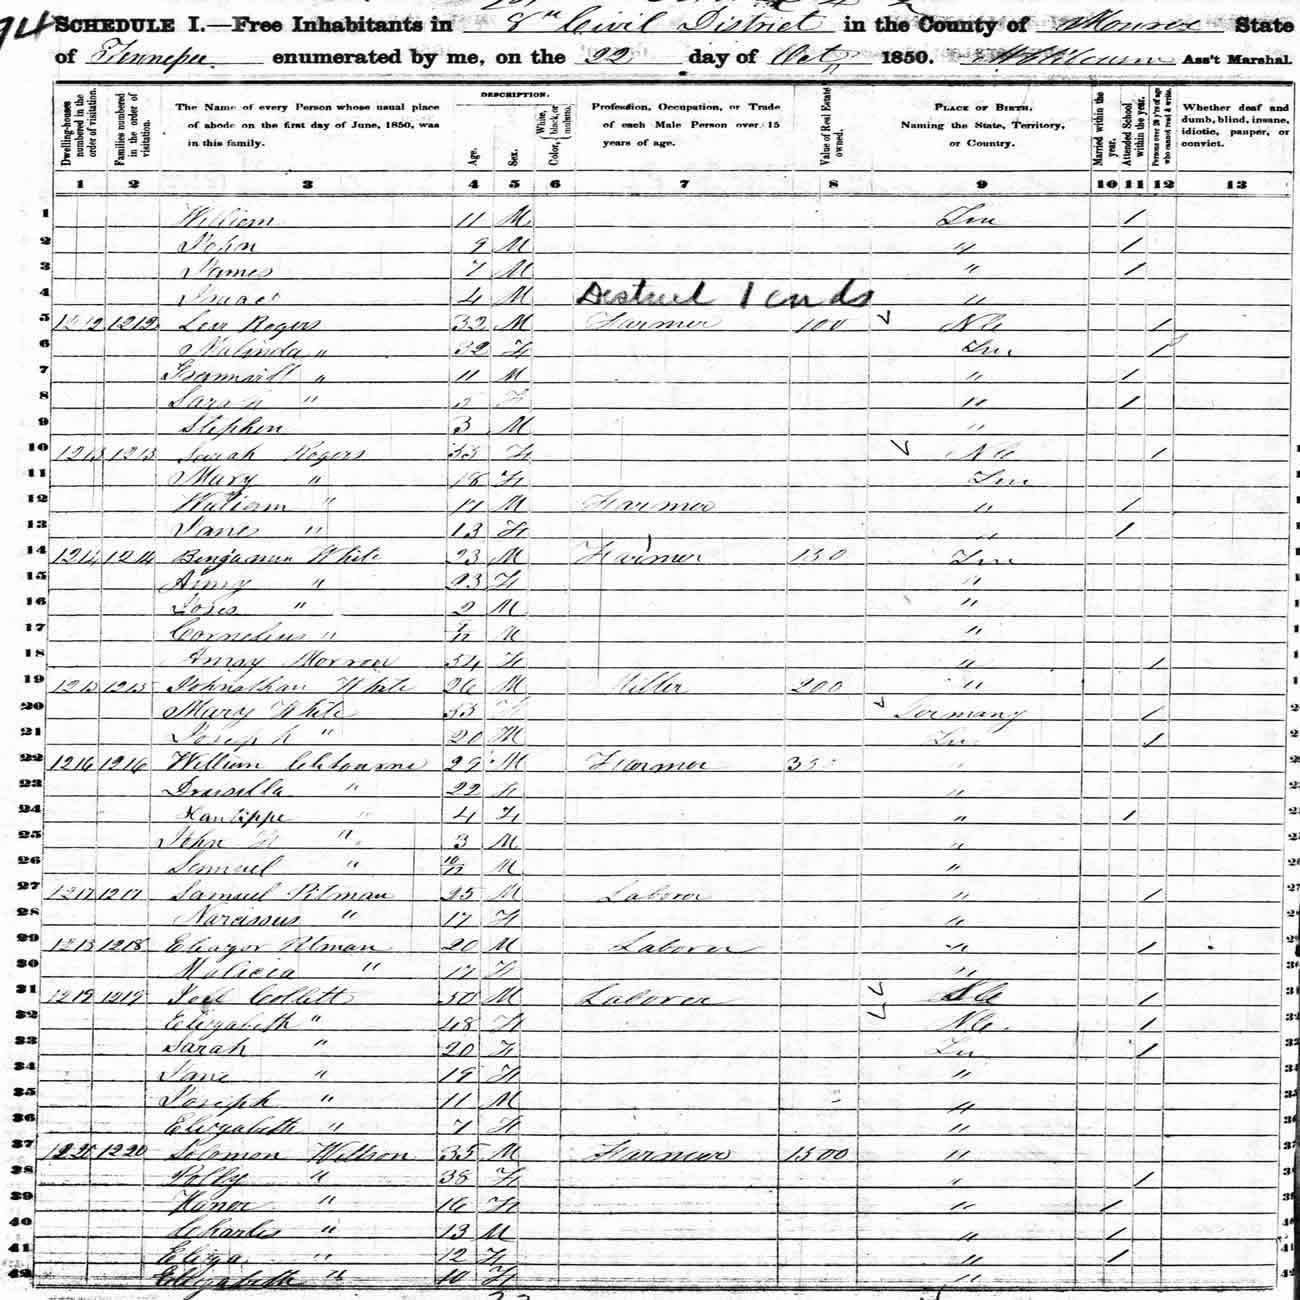 94
SCHEDULE I.—Free Inhabitants in 8th Civil District in the County of Monroe State
of Tennessee enumerated by me, on the 22 day of Oct 1850. Ass't Marshal.
Dwelling-houses numbered in the order of visitation.
Families numbered in the order of visitation.
The Name of every Person whose usual place of abode on the first day of June, 1850, was in this family.
DESCRIPTION.
Age.
Sex.
Color, White, black, or mulatto.
Profession, Occupation, or Trade of each Male Person over 15 years of age.
Value of Real Estate owned.
PLACE OF BIRTH, Naming the State, Territory, or Country.
Married within the year.
Attended School within the year.
Persons over 20 y'rs of age who cannot read & write.
Whether deaf and dumb, blind, insane, idiotic, pauper, or convict.
1 2 3 4 5 6 7 8 9 10 11 12 13
1 William 11 M Ten /
2 John 9 M " /
3 James 7 M " /
4 Isaac 4 M "
District 1 ends
5 1212 1212 Levi Rogers 32 M Farmer 100 NC /
6 Malinda " 32 F Ten /
7 " 11 M " /
8 Sarah " 5 F " /
9 Stephen 3 M "
10 1213 1213 Sarah Rogers 55 F NC /
11 Mary " 18 F Ten
12 William " 17 M Farmer " /
13 Jane " 13 F " /
14 1214 1214 Benjamin White 23 M Farmer 150 Ten
15 Amy " 23 F "
16 " 2 M "
17 Cornelius " M "
18 Amay Morrow 54 F " /
19 1215 1215 Johnathan White 26 M Miller 200 "
20 Mary White 53 F Germany /
21 Joseph " 20 M Ten /
22 1216 1216 William 29 M Farmer "
23 Drusilla " 22 F "
24 Xantippe " 4 F " /
25 John " 3 M "
26 Samuel " 10/12 M "
27 1217 1217 Samuel Pitman 25 M Laborer " /
28 Narcissus " 17 F "
29 1218 1218 Eliazor Pitman 20 M Laborer " /
30 Malicia " 17 F "
31 1219 1219 Joel Collett 50 M Laborer /
32 Elizabeth " 48 F NC. /
33 Sarah " 20 F Ten /
34 Jane " 19 F "
35 Joseph " 11 M "
36 Elizabeth " 7 F "
37 1220 1220 Solomon Willson 35 M Farmer 1500 "
38 Polly " 38 F " /
39 Hanor " 16 F " /
40 Charles " 13 M " /
41 Eliza " 12 F " /
42 Elizabeth " 10 F "